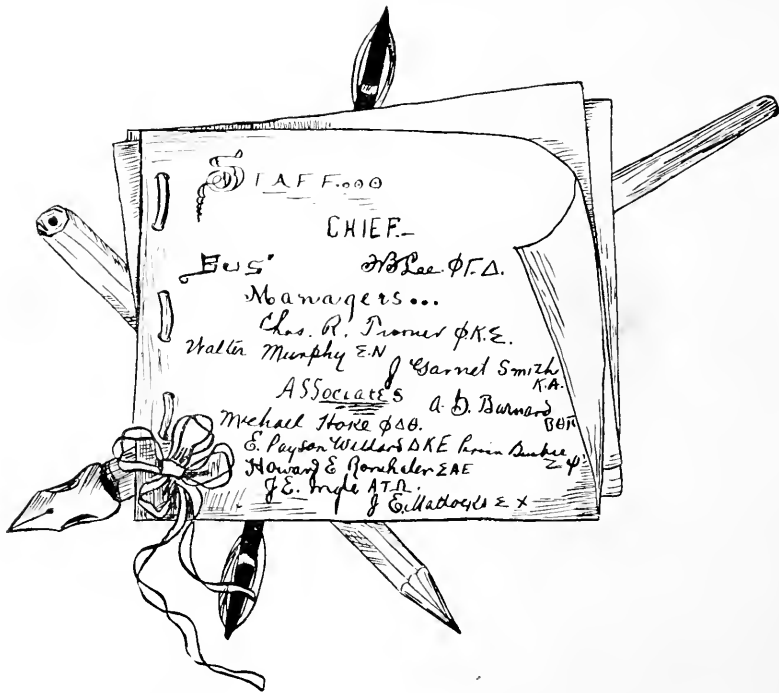 STAFF...
CHIEF.-
Bus' WB Lee. ΦΓ.Δ.
Managers...
Chas. R. Turner Φ.K.Σ.
Walter Murphy Σ.N
J Garnet Smith
K.A.
ASSociates
A. H. Barnard
BΘΠ
Michael Hoke ΦΔΘ.
E. Payson Willard ΔKE Perrin Busbee
Σ Ψ.
Howard E Rondthaler ΣAE
J.E. Ingle ATΩ.
J E. Mattocks Σ X